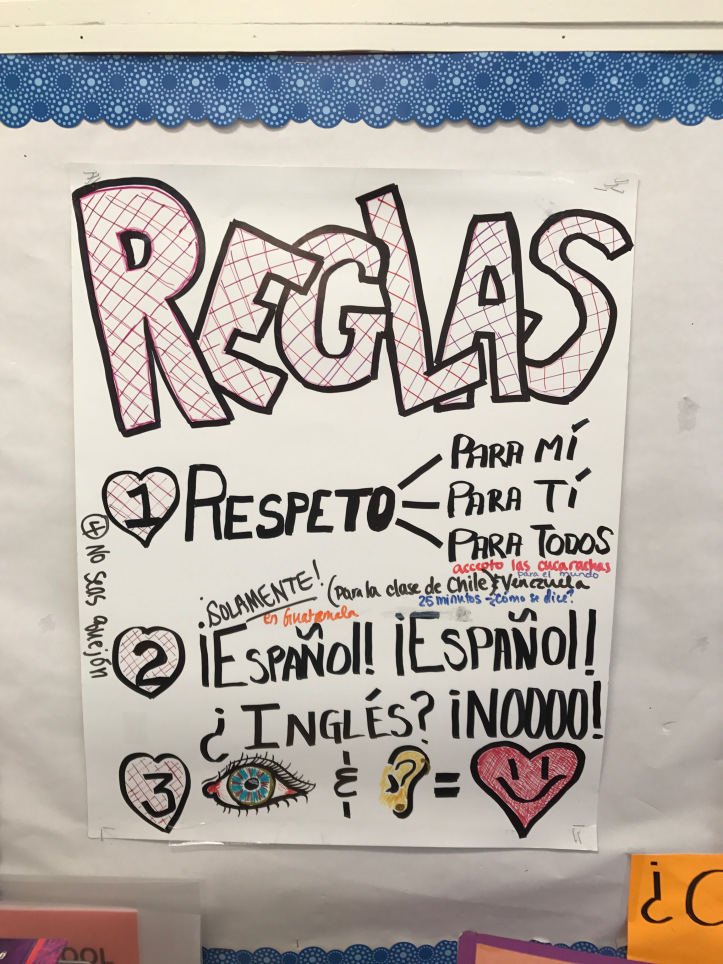 REGLAS
1 RESPETO
PARA MÍ
PARA TÍ
PARA TODOS
accepto las cucarachas
para el mundo
¡SOLAMENTE! (Para la clase de Chile) & Venezuela
en Guatemala
25 minutos - ¿Cómo se dice?
2 ¡ESPAÑOL! ¡ESPAÑOL!
¿INGLÉS? ¡NOOOO!
3 & =
④ NO SAS quejón
¿C
OOL